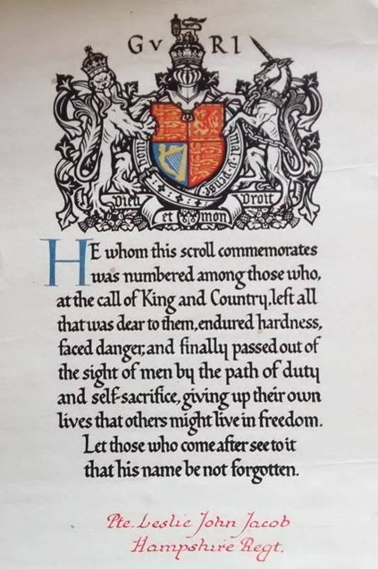 G V R I
Dieu et mon Droit
HE whom this scroll commemorates
was numbered among those who,
at the call of King and Country, left all
that was dear to them, endured hardness,
faced danger, and finally passed out of
the sight of men by the path of duty
and self-sacrifice, giving up their own
lives that others might live in freedom.
Let those who come after see to it
that his name be not forgotten.
Pte. Leslie John Jacob
Hampshire Regt.